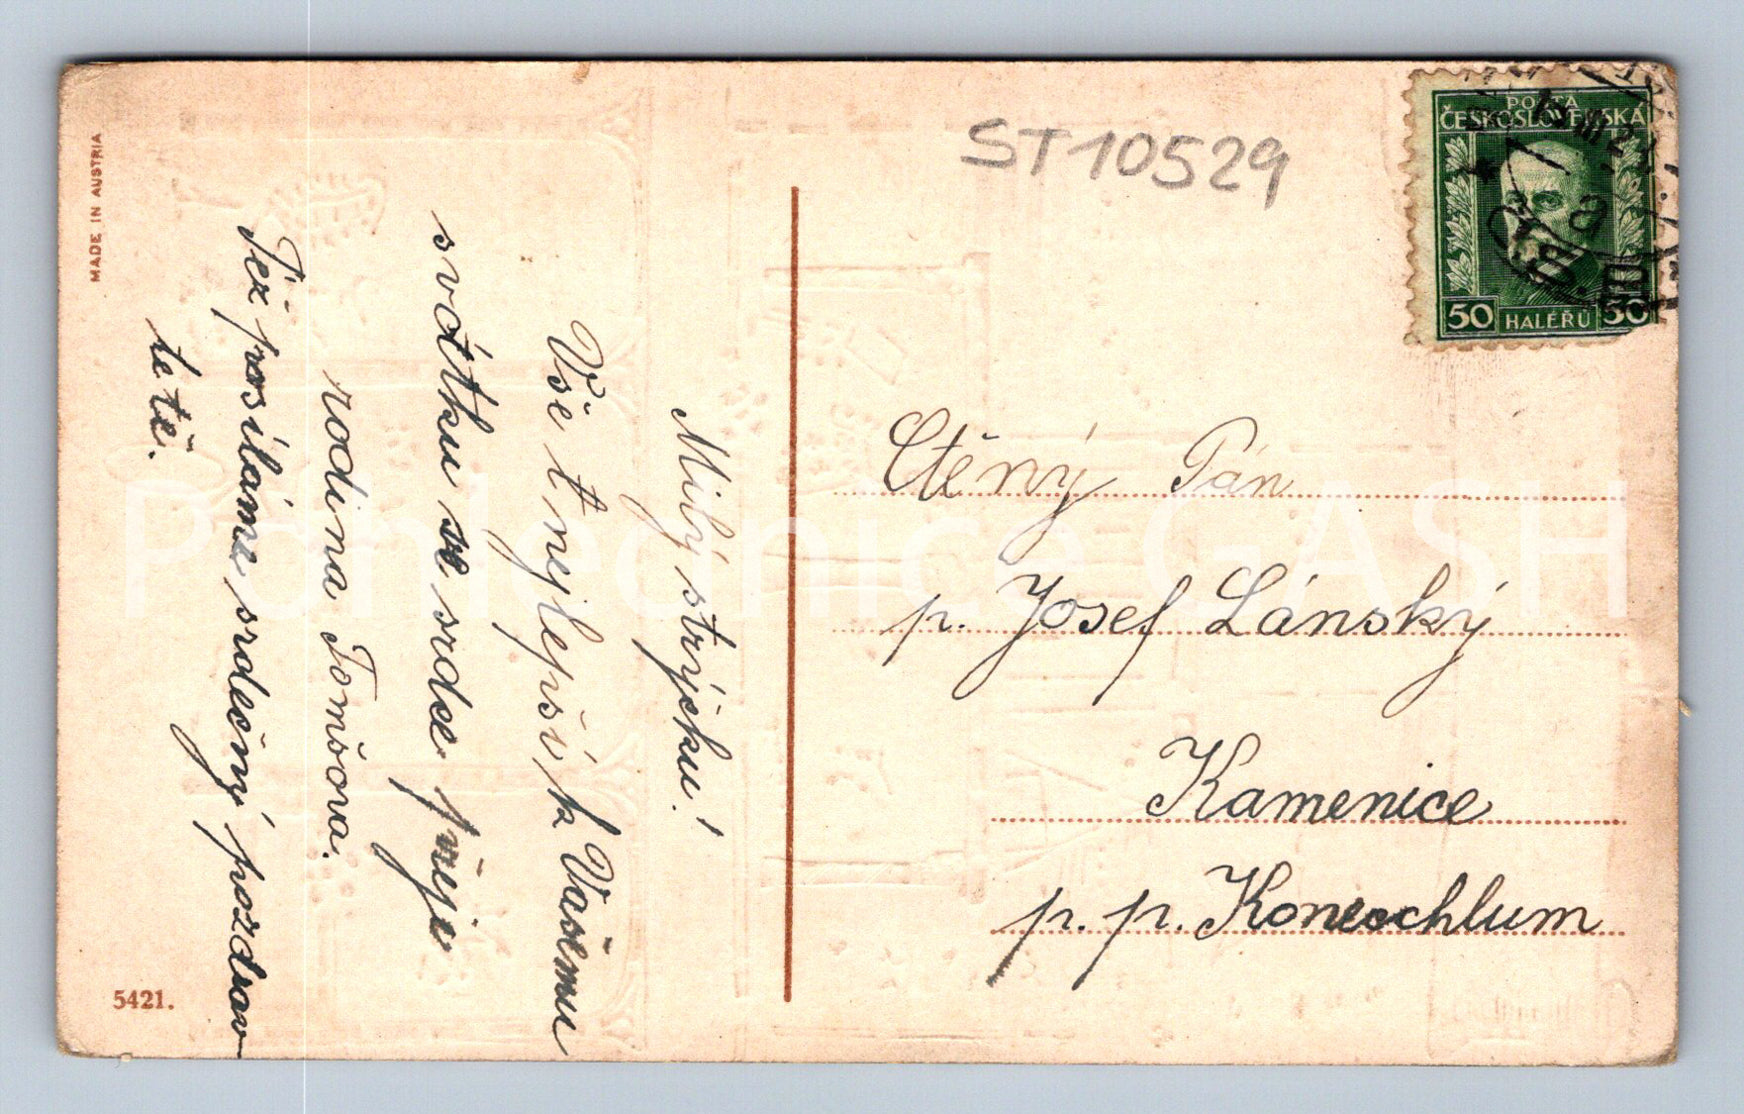 MADE IN AUSTRIA
Milý strýčku!
Vše t nejlepší k Vašemu
svátku ze srdce přeje
rodina Tomšova.
Též posíláme srdečný pozdrav
tetě.
5421.
ST10529
POŠTA
ČESKOSLOVENSKÁ
50 HALÉŘŮ 50
Ctěný Pán
p. Josef Lánský
Kamenice
p. p. Konecchlum
Pohlednice GASH